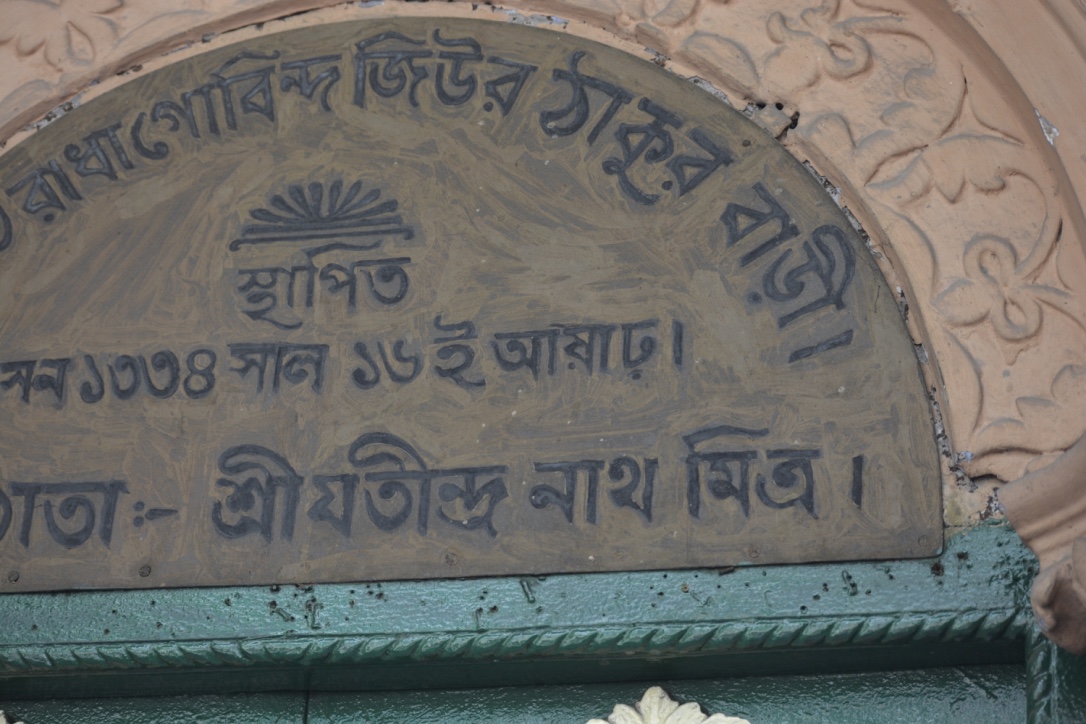 রাধাগোবিন্দ জিউর ঠাকুর বাড়ী।
স্থাপিত
সন ১৩৩৪ সাল ১৬ই আষাঢ়।
শ্রীযতীন্দ্র নাথ মিত্র।